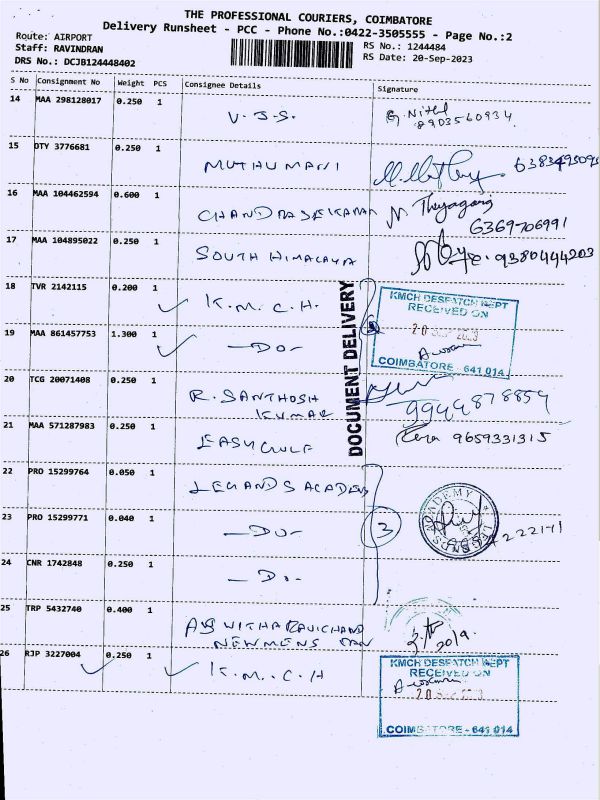 THE PROFESSIONAL COURIERS, COIMBATORE
Delivery Runsheet - PCC - Phone No.:0422-3505555 - Page No.:2
Route: AIRPORT
Staff: RAVINDRAN
DRS No.: DCJB124448402
RS No.: 1244484
RS Date: 20-Sep-2023
S No Consignment No Weight PCS Consignee Details Signature
14 MAA 298128017 0.250 1 V.J.S. G. Nithul
8903560934
15 DTY 3776681 0.250 1 MUTHUMANI
16 MAA 104462594 0.600 1 CHANDRASEKARAN N. Thyagaraj
6369706991
17 MAA 104895022 0.250 1 SOUTH HIMALAYA 9380444203
18 TVR 2142115 0.200 1 K.M.C.H.
KMCH DESPATCH DEPT
RECEIVED ON
19 MAA 861457753 1.300 1 —DO—
COIMBATORE - 641 014
DOCUMENT DELIVERY
20 TCG 20071408 0.250 1 R. SANTHOSH
KUMAR
9944878854
21 MAA 571287983 0.250 1 EASYGULF 9659331315
22 PRO 15299764 0.050 1 LEGANDS ACADEMY
23 PRO 15299771 0.040 1 —DO— 3
LEGENDS ACADEMY
24 CNR 1742848 0.250 1 —DO—
25 TRP 5432740 0.400 1
26 RJP 3227004 0.250 1 K.M.C.H
KMCH DESPATCH DEPT
RECEIVED ON
COIMBATORE - 641 014